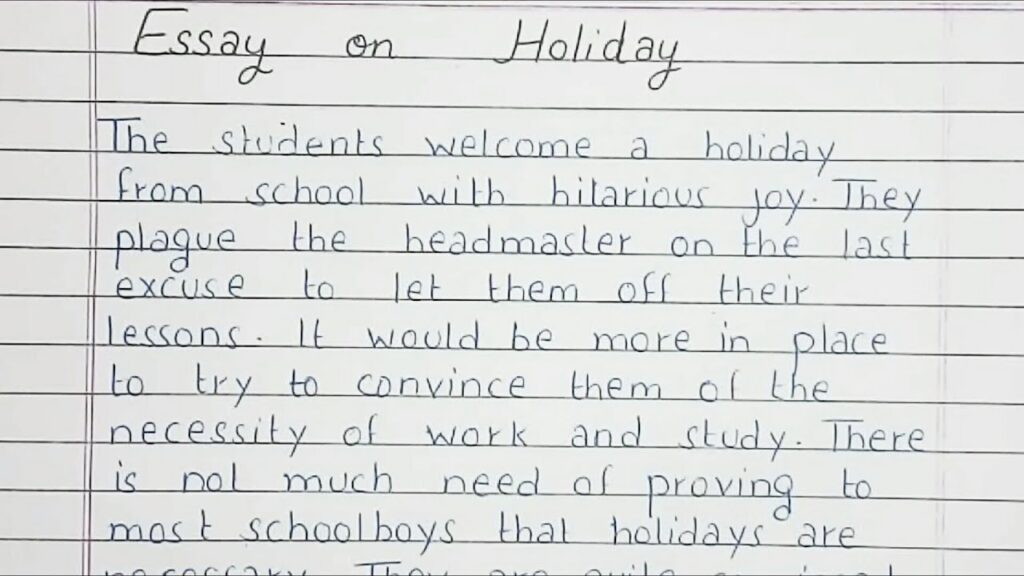 Essay on Holiday
The students welcome a holiday
from school with hilarious joy. They
plague the headmaster on the last
excuse to let them off their
lessons. It would be more in place
to try to convince them of the
necessity of work and study. There
is not much need of proving to
most schoolboys that holidays are
necessary. They are quite